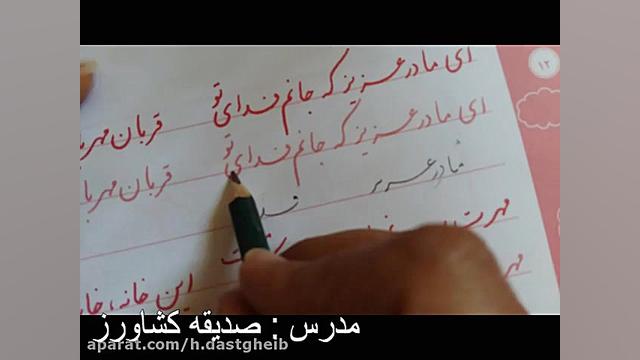 ۱۲
ای مادر عزیز که جانم فدای تو قربان مهر
ای مادر عزیز که جانم فدای تو قربان مهربا
مادر عزیز
مهر
این خانه،
مدرس : صدیقه کشاورز
aparat.com/h.dastgheib